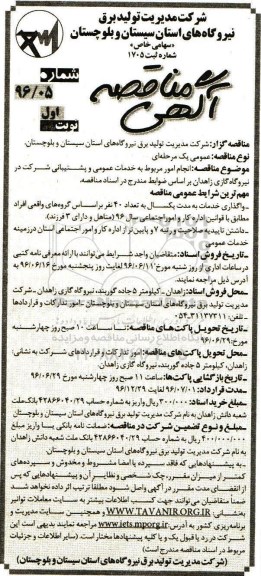 شرکت مدیریت تولید برق
نیروگاه‌های استان سیستان و بلوچستان
«سهامی خاص»
شماره ثبت ۱۷۰۵
آگهی مناقصه
شماره
۹۶/۰۵
نوبت اول
مناقصه گزار: شرکت مدیریت تولید برق نیروگاه‌های استان سیستان و بلوچستان.
نوع مناقصه: عمومی یک مرحله‌ای
موضوع مناقصه: انجام امور مربوط به خدمات عمومی و پشتیبانی شرکت در
نیروگاه گازی زاهدان بر اساس ضوابط مندرج در اسناد مناقصه.
مهم ترین شرایط عمومی مناقصه
-واگذاری خدمات به مدت یکسال به تعداد ۴۰ نفر براساس گروه‌های واقعی افراد
مطابق با قوانین اداره کار و امور اجتماعی سال ۹۶ (متاهل و دارای ۲ فرزند).
-داشتن تاییدیه صلاحیت ورتبه ۷ و پایین تر از اداره کار و امور اجتماعی استان درزمینه
خدمات عمومی
-تاریخ فروش اسناد: متقاضیان واجد شرایط می‌توانند با ارائه معرفی نامه کتبی
در ساعات اداری از روز شنبه مورخ ۹۶/۰۶/۱۱ لغایت روز پنجشنبه مورخ ۹۶/۰۶/۱۶ به
آدرس ذیل مراجعه نمایند.
-محل فروش اسناد: زاهدان - کیلومتر ۵ جاده گوربند، نیروگاه گازی زاهدان - شرکت
مدیریت تولید برق نیروگاه‌های استان سیستان و بلوچستان - امور تدارکات و قراردادها
- تلفن: ۰۵۴-۳۱۱۳۷۳۱۱
-تاریخ تحویل پاکت های مناقصه: تا ساعت ۱۰ صبح روز چهارشنبه
مورخ ۹۶/۰۶/۲۹
-محل تحویل پاکت‌های مناقصه: امور تدارکات و قراردادهای شرکت به نشانی:
زاهدان کیلومتر ۵ جاده گوربند
-تاریخ بازگشایی پاکت‌ها: ساعت ۱۱ صبح روز چهارشنبه مورخ ۹۶/۰۶/۲۹
-مدت قرارداد: از ۹۶/۰۷/۰۱ لغایت ۹۶/۱۲/۲۹
-مبلغ خرید اسناد: ۳۰۰/۰۰۰ ریال واریز به شماره حساب ۴۲۸۶۶۰۴۰/۲۹ بانک ملت
شعبه دانش زاهدان به نام شرکت مدیریت تولید برق نیروگاه‌های استان سیستان و بلوچستان
-مبلغ و نوع تضمین شرکت در مناقصه: ضمانت نامه بانکی یا واریز مبلغ
۴۰۰/۰۰۰/۰۰۰ ریال به شماره حساب ۴۲۸۶۶۰۴۰/۲۹ بانک ملت شعبه دانش زاهدان
به نام شرکت مدیریت تولید برق نیروگاه‌های استان سیستان و بلوچستان
-به پیشنهادهایی که فاقد سپرده یا امضا مشروط و مخدوش و سپرده‌های
کمتر از میزان مقرر، چک شخصی و نظایر آن و پیشنهادهایی که پس
از انقضای مدت مقرر در آگهی واصل شود مطلقا ترتیب اثر داده نخواهد شد
ضمناً متقاضیان می‌توانند جهت کسب اطلاعات بیشتر به سایت معاملات توانیر
بخشانی: WWW.TAVANIR.ORG.IR و همچنین سایت مدیریت و
برنامه‌ریزی کشور به آدرس www.iets.mporg.ir مراجعه نمایند بدیهی است این
شرکت در رد یا قبول یک و یا کلیه پیشنهادها مختار است. (سایر اطلاعات و جزئیات
مربوط در اسناد مناقصه مندرج است)
(شرکت مدیریت تولید برق نیروگاه‌های استان سیستان و بلوچستان)